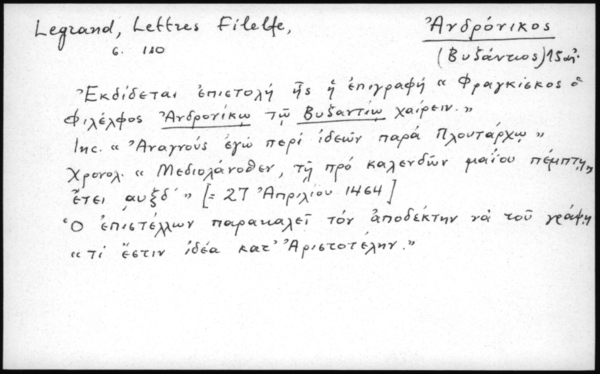 Legrand, Lettres Filelfe, Ἀνδρόνικος
σ. 110 (Βυζάντιος) 15 αἰ.
Ἐκδίδεται ἐπιστολή ἧς ἡ ἐπιγραφή « Φραγκίσκος ὁ
Φιλέλφος Ἀνδρονίκῳ τῷ Βυζαντίῳ χαίρειν.»
Inc. « Ἀναγνούς ἐγώ περί ἰδεῶν παρά Πλουτάρχῳ »
Χρονολ. « Μεδιολάνοθεν, τῇ πρό καλενδῶν μαΐου πέμπτῃ,
ἔτει ͵αυξδ´ » [= 27 Ἀπριλίου 1464]
Ὁ ἐπιστέλλων παρακαλεῖ τόν ἀποδέκτην νά τοῦ γράψῃ
« τί ἔστιν ἰδέα κατ' Ἀριστοτέλην.»